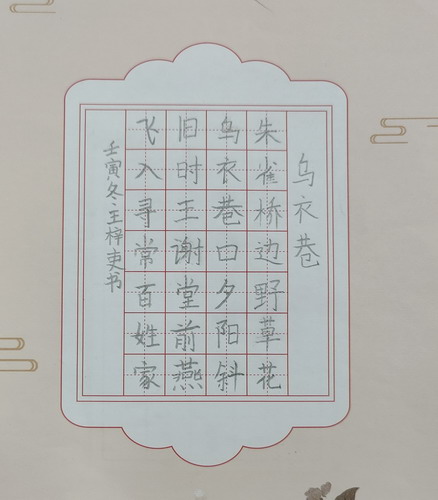 乌衣巷
朱雀桥边野草花
乌衣巷口夕阳斜
旧时王谢堂前燕
飞入寻常百姓家
壬寅冬王梓吏书